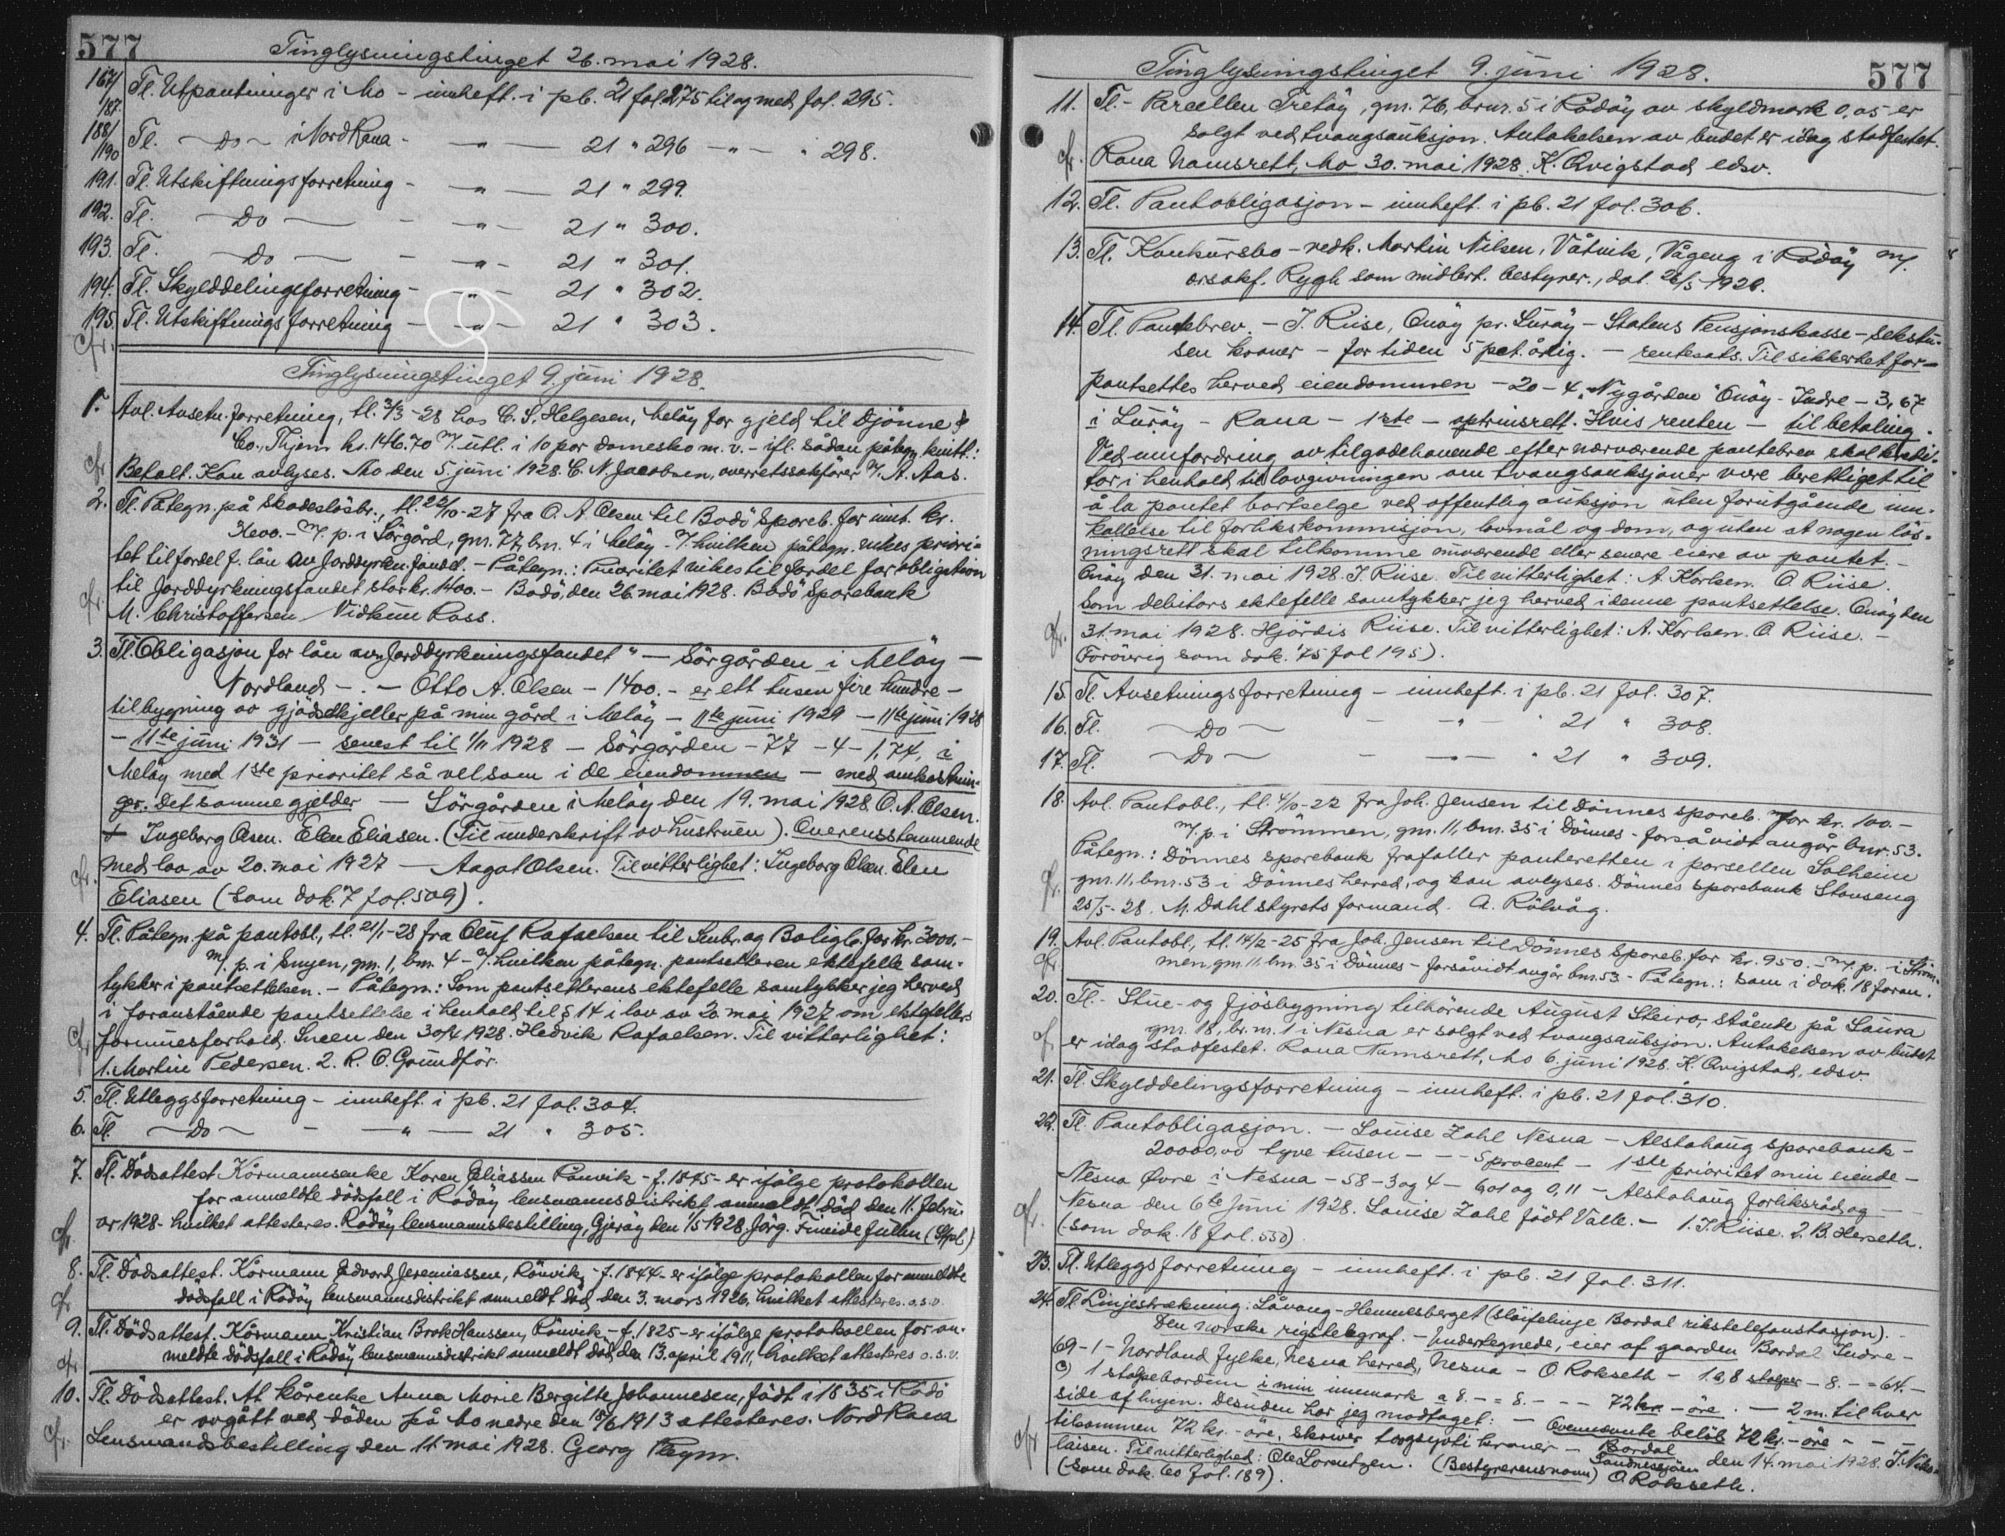 577
Tinglysningstinget 26. mai 1928.
167/187. Tl. Utpantninger i Mo – innheft. i pb. 21 fol. 275 til og med fol. 295.
188/190 Tl. – Do – i Nord Rana – " – 21 " 296 – " – " 298.
191. Tl. Utskiftningsforretning – " – 21 " 299.
192. Tl. – Do – – " – 21 " 300.
193. Tl. – Do – – " – 21 " 301.
194. Tl. Skylddelingsforretning – " – 21 " 302.
195. Tl. Utskiftningsforretning – " – 21 " 303.
Cfr.
Tinglysningstinget 9. juni 1928.
1. Avl. Avsetn. forretning, tl. 3/3-28 hos C. S. Helgesen, Meløy for gjeld til Djønne &
Co., Thjem kr. 146.70 m/. utl. i 10 par domesko m. v. – ifl. sådan påtegn. kvitt.:
cfr Betalt. Kan avlyses. Mo den 5. juni 1928. C. N. Jacobsen, overretssakfører v/. A. Aas.
2. Tl. Påtegn. på skadesløsbr., tl. 22/10-27 fra O. A. Olsen til Bodø Spareb. for innt. kr.
3600.– m/. p. i Sørgård, gnr. 77, bnr. 4 i Meløy – v/. hvilken påtegn. vikes priori-
tet til fordel f. lån av Jorddyrkn.fondet. – Påtegn.: Prioritet vikes til fordel for obligation
cfr. til Jorddyrkningsfondet stor kr. 1400.– Bodø, den 26. mai 1928. Bodø Sparebank
M. Christoffersen Vidkunn Rass.
3. Tl. Obligasjon for lån av „Jorddyrkningsfondet" – Sørgården i Meløy –
Nordland – . – Otto A. Olsen – 1400.– er ett tusen fire hundre –
til bygning av gjødselkjeller på min gård i Meløy – 11te juni 1929 – 11te juni 1928
– 11te juni 1931 – senest til 1/11 1928 – Sørgården – 77 – 4 – 1,74, i
Meløy med 1ste prioritet så vel som i de eiendommen – med omkostnin-
ger. Det samme gjelder – Sørgården i Meløy den 19. mai 1928. O. A. Olsen.
Ingeborg Olsen. Elen Eliasen. (Til underskrift av hustruen). Overensstemmende
cfr. med lov av 20. mai 1927 – Aagot Olsen. Til vitterlighet: Ingeborg Olsen. Elen
Eliasen (som dok. 7 fol. 509).
4. Tl. Påtegn. på pantobl., tl. 21/1-28 fra Oluf Rafaelsen til Småbr. og Boligb. for kr. 3000.–
m/. p. i Sneen, gnr. 1, bnr. 4 – v/. hvilken påtegn. pantsetteren ektefelle sam-
tykker i pantsettelsen. – Påtegn.: Som pantsetterens ektefelle samtykker jeg herved
i foranstående pantsettelse i henhold til § 14 i lov av 20 mai 1927 om ektefellers
cfr formuesforhold. Sneen den 30/4 1928. Hedvik Rafaelsen. Til vitterlighet:
1. Martin Pedersen. 2. R. O. Grundfør.
5. Tl. Utleggsforretning – innheft. i pb. 21 fol. 304.
6. Tl. – Do – – " – 21 " 305.
7. Tl. Dødsattest. Kårmannsenke Karen Eliassen Rånvik – f. 1845 – er ifølge protokollen
for anmeldte dødsfall i Rødøy lensmannsdistrikt anmeldt død den 11. febru-
cfr. ar 1928 – hvilket attesteres. Rødøy lensmannsbestilling, Gjerøy den 1/5 1928. Jørg. Fineide fullm (Stpl)
8. Tl. Dødsattest. Kårmann Edvard Jeremiassen, Rånvik, – f. 1844 – er ifølge protokollen for anmeldte
cfr dødsfall i Rødøy lensmannsdistrikt anmeldt død den 3. mars 1926, hvilket attesteres. o.s.v.
9. Tl. Dødsattest. Kårmann Kristian Brok Hanssen, Rånvik – f. 1825 – er ifølge protokollen for an-
cfr meldte dødsfall i Rødøy lensmannsdistrikt anmeldt død den 13. april 1911, hvilket attesteres o.s.v.
10. Tl. Dødsattest. At kårenke Anna Marie Bergitte Johannesen, født i 1835 i Rødø
er avgått ved døden på Mo nedre den 18/6 1913 attesteres. Nord Rana
cfr. Lensmandsbestilling den 11 mai 1928. Georg Rasm.
577
Tinglysningstinget 9. juni 1928.
11. Tl. – Parcellen Tretøy, gnr. 76, brnr. 5 i Rødøy av skyldmark 0,05 er
solgt ved tvangsauksjon. Antakelsen av budet er idag stadfestet.
cfr. Rana Namsrett, Mo 30. mai 1928. K. Qvigstad edsv.
12. Tl. Pantobligasjon – innheft. i pb. 21 fol. 306.
13. Tl. Konkursbo – vedk. Martin Nilsen, Våtvik, Vågeng i Rødøy m/.
orsakf. Rygh som midlert. bestyrer., dat. 26/5 1928.
14. Tl. Pantebrev. – J. Riise, Onøy pr. Lurøy – Statens Pensjonskasse – sekstu-
sen kroner – for tiden 5 pct. årlig. – rentesats. Til sikkerhet for –
pantsettes herved eiendommen – 20 – 4 „Nygården" Onøy – Indre – 3,67
i Lurøy – Rana – 1ste – optrinsrett. Hvis renten – til betaling.
Ved innfordring av tilgodehavende efter nærværende pantebrev skal kredi-
tor i henhold til lovgivningen om tvangsauksjoner være berettiget til
å la pantet bortselge ved offentlig auksjon uten forutgående inn-
kallelse til forlikskommisjon, lovmål og dom, og uten at nogen løs-
ningsrett skal tilkomme nuværende eller senere eiere av pantet. –
Onøy den 31. mai 1928. J. Riise. Til vitterlighet: A. Karlsen. O Riise.
Som debitors ektefelle samtykker jeg herved i denne pantsettelse. Onøy den
cfr. 31. mai 1928. Hjørdis Riise. Til vitterlighet: A. Karlsen. O. Riise. –
Forøvrig som dok. 75 fol 195).
15. Tl. Avsetningsforretning – innheft. i pb. 21 fol. 307.
16. Tl. – Do – – " – " 21 " 308.
17. Tl. – Do – – " – " 21 " 309.
18. Avl. Pantobl., tl. 4/10-22 fra Joh. Jensen til Dønnes spareb. for kr. 100.–
m/. p. i Strømmen, gnr. 11, bnr. 35 i Dønnes – forsåvidt angår bnr. 53.
Påtegn.: Dønnes sparebank frafaller panteretten i parsellen Solheim
cfr. gnr. 11, bnr. 53 i Dønnes herred, og kan avlyses. Dønnes sparebank Stavseng
25/5-28. M. Dahl styrets formand. A. Rølvåg.
19. Avl. Pantobl., tl. 14/2-25 fra Joh. Jensen til Dønnes spareb. for kr. 950.– m/. p. i Strøm-
cfr. men, gnr. 11, bnr. 35 i Dønnes – forsåvidt angår bnr. 53 – Påtegn.: som i dok. 18 foran.
20. Tl. – Stue- og fjøsbygning tilhørende August Sleiro, stående på Saura
gnr. 18, br.nr. 1 i Nesna er solgt ved tvangsauksjon. Antakelsen av budet
cfr er idag stadfestet. Rana Namsrett, Mo 6. juni 1928. K. Qvigstad, edsv.
21. Tl. Skylddelingsforretning – innheft. i pb. 21 fol. 310.
22. Tl. Pantobligasjon. – Louise Zahl Nesna – Alstahaug sparebank –
20000,00 tyve tusen – – – 5 procent – 1ste prioritet min eiende –
Nesna Øvre i Nesna – 58 – 3 og 4 – 6,01 og 0,11 – Alstahaug forliksråd, og –
cfr. Nesna den 6te Juni 1928. Louise Zahl født Valle. – 1. J. Riise. 2. B. Herseth.
(som dok. 18 fol. 550).
23. Tl. Utleggsforretning – innheft. i pb. 21 fol. 311.
24. Tl. Linjestrækning: Låvong – Hemnesberget (sløifelinje Bardal rikstelefonstasjon). –
Den norske rigstelegraf. – undertegnede, eier af gaarden Bardal Indre –
69 – 1 – Nordland fylke, Nesna herred, Nesna – O. Rokseth – 1. a, 8 stolper – 8.– = 64.–
c) 1 stolpebardun i min innmark a 8.– = 8.– – – 72 kr. – øre. – 2 m. til hver
side af linjen. Desuden har jeg modtaget: – Ovennævnte beløb 72 kr. – øre – –
cfr tilsammen 72 kr. – øre, skriver toogsytti kroner – Bardal Sandnessjøen den 14. mai 1928. J. Niko-
laisen. Til vitterlighed: Ole Lorentzen. (Bestyrerens navn) O. Rokseth.
(som dok. 60 fol. 189).